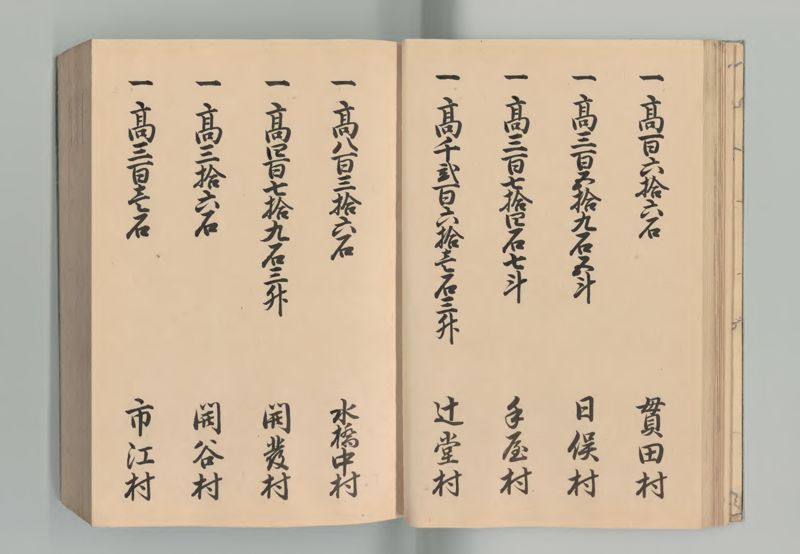 一 高百六拾六石 貫田村
一 高三百五拾九石五斗 日俣村
一 高三百七拾四石七斗 手屋村
一 高千弐百六拾壱石三升 辻堂村
一 高八百三拾六石 水橋中村
一 高四百七拾九石三升 開發村
一 高三拾六石 開谷村
一 高三百壱石 市江村